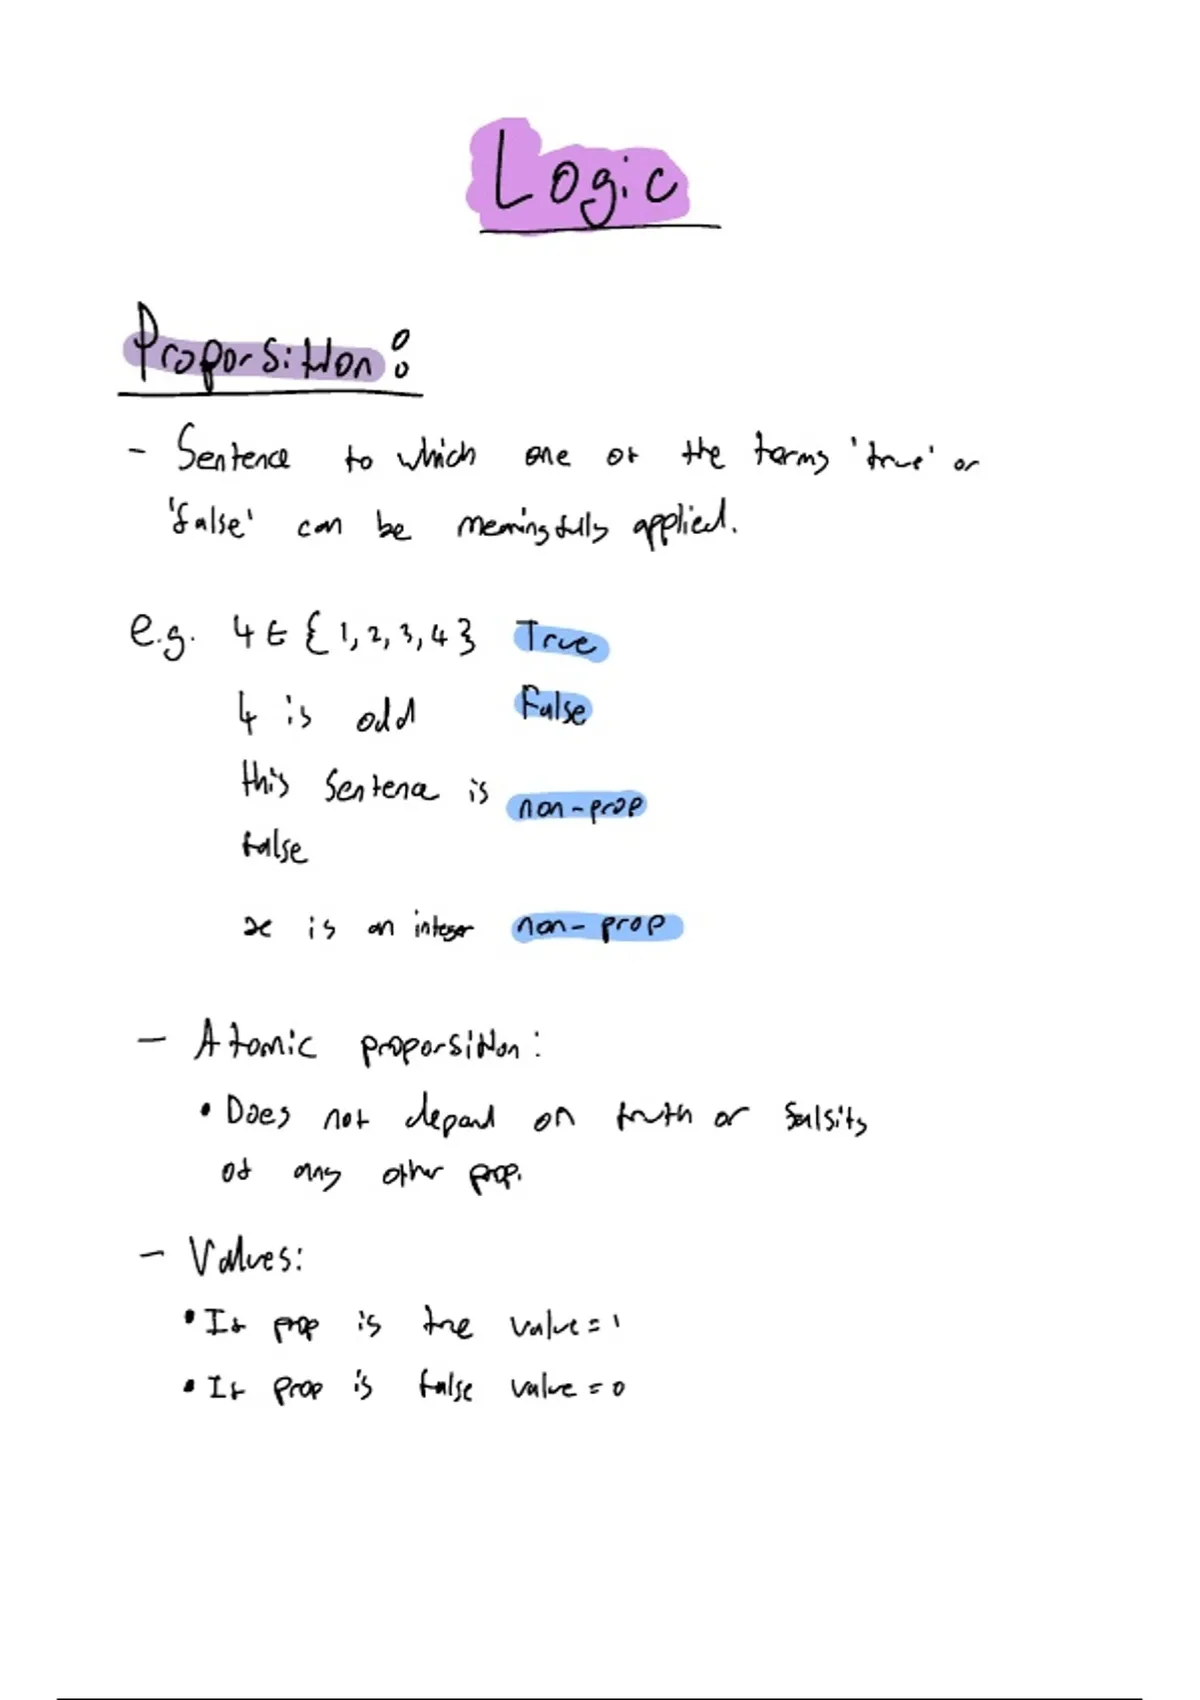 Logic
Proporsition:
- Sentence to which one of the terms 'true' or
'false' can be meaningfully applied.
e.g. 4 ∈ {1, 2, 3, 4} True
4 is odd False
this sentence is non-prop
false
x is an integer non-prop
- Atomic proporsition:
• Does not depend on truth or falsity
of any other prop.
- Values:
• If prop is true value = 1
• If prop is false value = 0